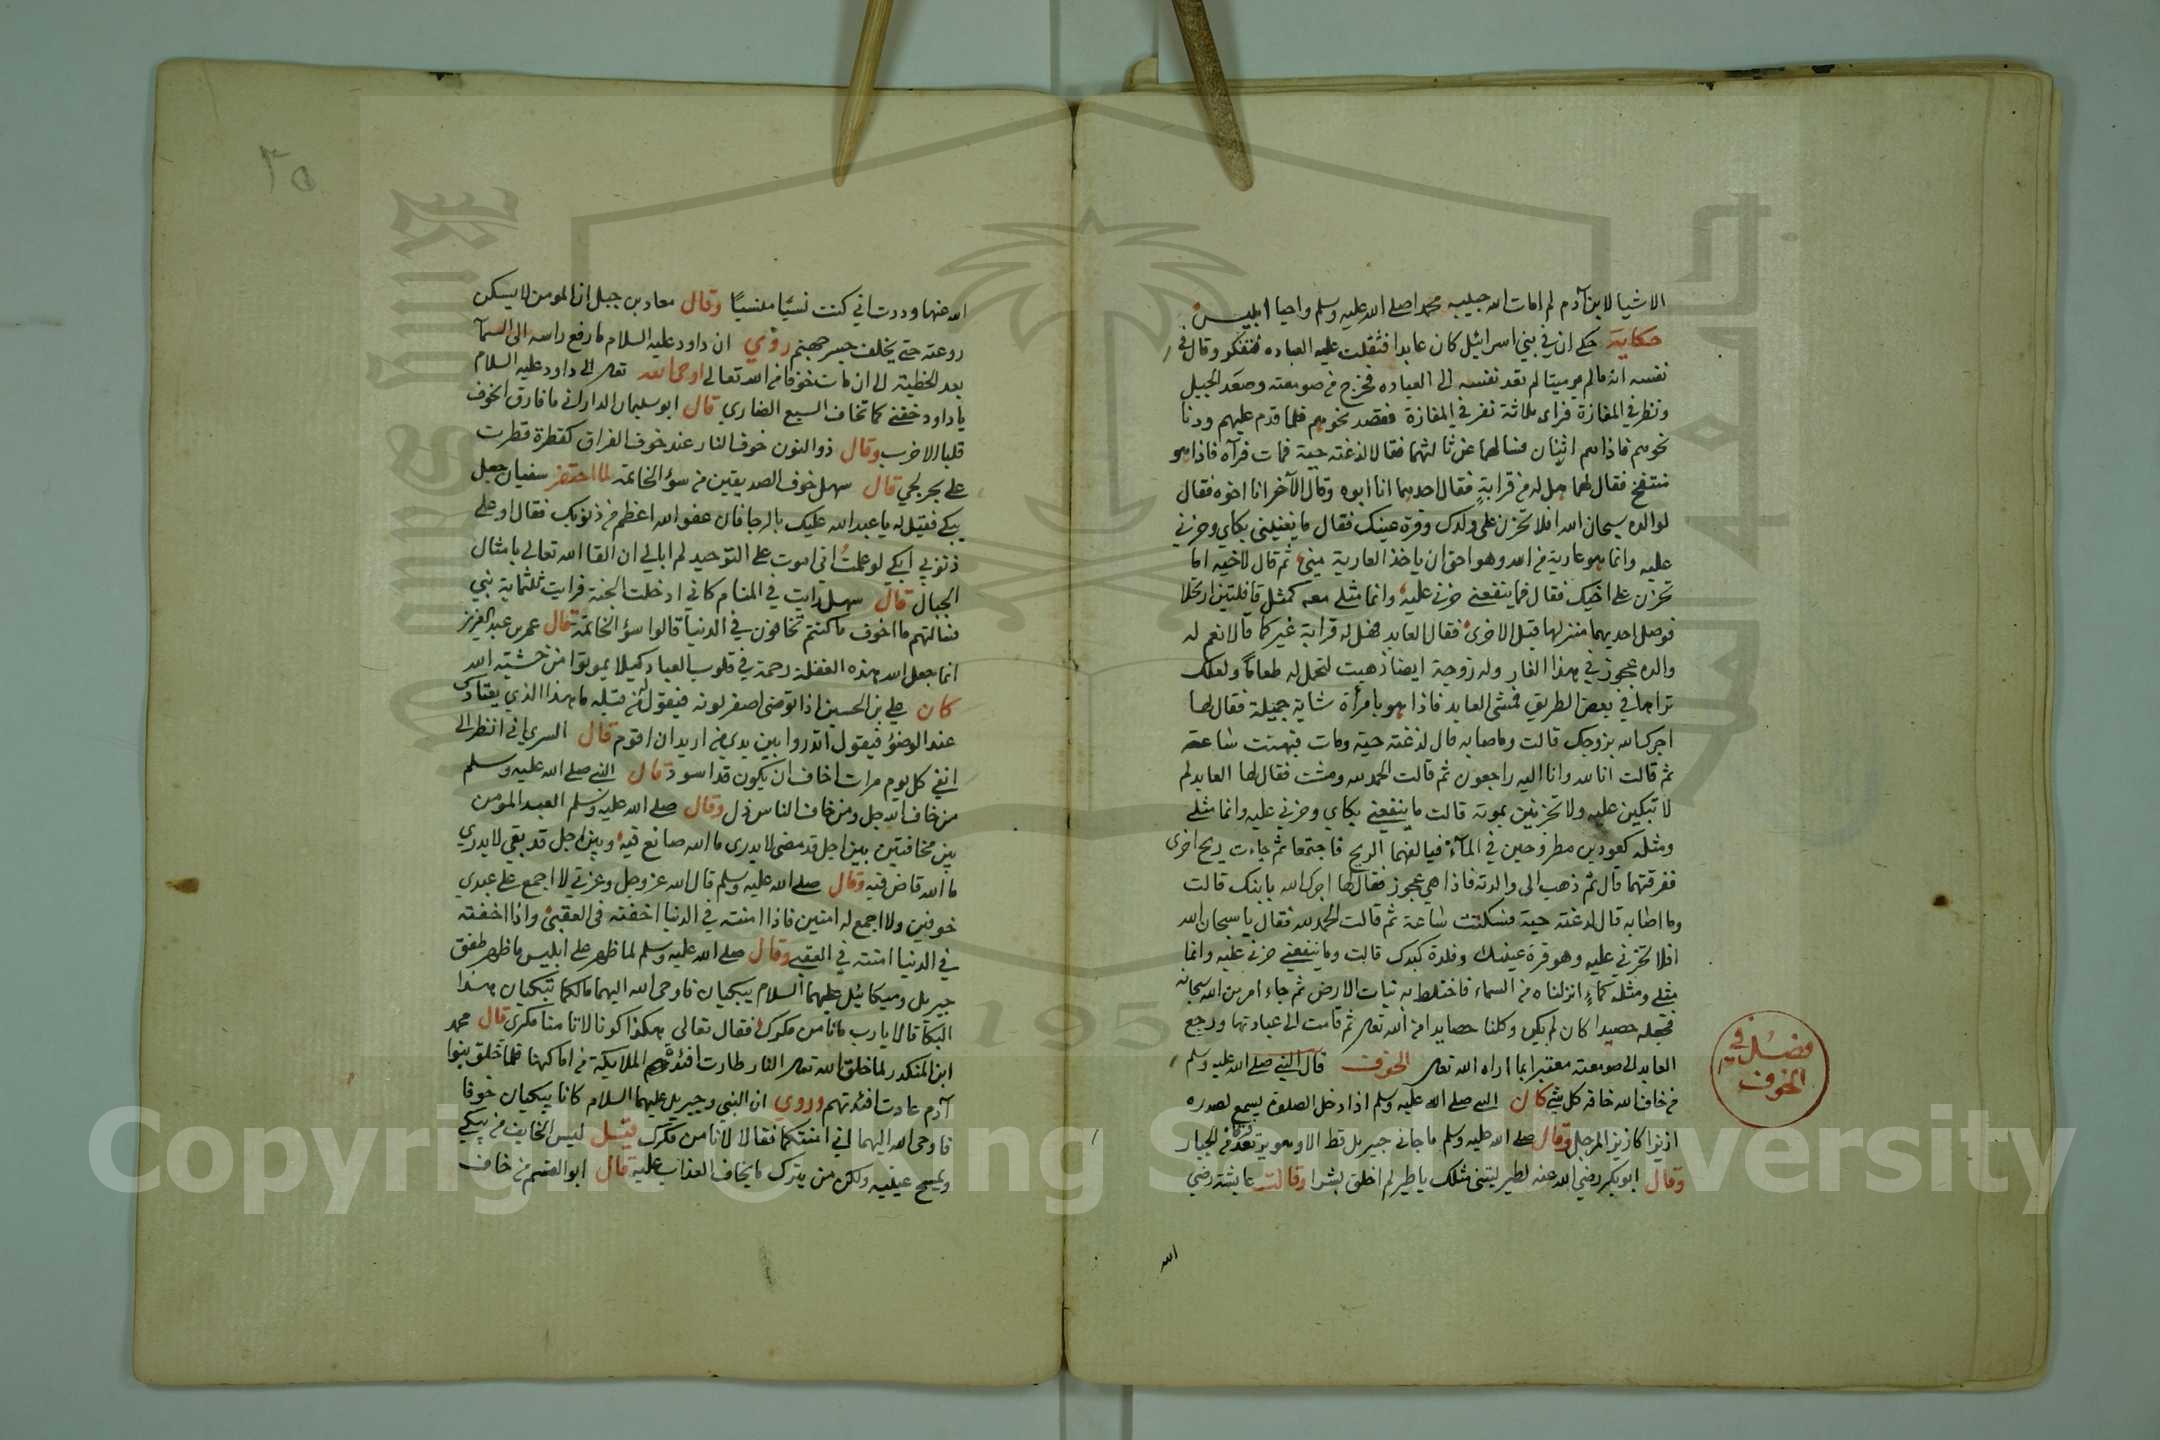 الاشيا لابن آدم لم امات الله حبيبه محمدا صلى الله عليه وسلم واحيا ابليس
حكاية حكي ان في بني اسرائيل كان عابدا فثقلت عليه العباده فتفكر وقال في
نفسه انه مالم يرميتا لم تعد نفسه الى العباده فخرج من صومعته وصعد الجبل
ونظر في المفازة فراى ثلاثة نفر في المفازة فقصد نحوهم فلما قدم عليهم ودنا
نحوهم فاذا هم اثنان فسالهما عن ثالثهما فقالا لدغته حية فمات فرآه فاذا هو
منتفخ فقال لهما هل له من قرابة فقال احدهما انا ابوه وقال الآخر انا اخوه فقال
لوالده سبحان الله افلا تحزن على ولدك وقرة عينك فقال ما يغنيني بكاي وحزني
عليه وانما هو عارية من الله وهو احق ان ياخذ العارية مني ثم قال لاخيه اما
تحزن على اخيك فقال فما ينفعني حزني عليه وانما مثلي معه كمثل قافلتين ارتحلا
فوصل احديهما منزلها قبل الاخرى فقال العابد فهل له قرابة غيركما قالا نعم له
والده عجوز في هذا الغار وله زوجة ايضا ذهبت لتحمل له طعاما ولعلك
تراها في بعض الطريق فمشى العابد فاذا هو بامرأة شابة جميلة فقال لها
اجرك الله بزوجك قالت وما صابه قال لدغته حية ومات فبهتت ساعة
ثم قالت انا لله وانا اليه راجعون ثم قالت الحمد لله ومشت فقال لها العابد لم
لا تبكين عليه ولا تحزنين بموته قالت ما ينفعني بكاي وحزني عليه وانما مثلي
ومثله كعودين مطروحين في المآء فيالفهما الريح فاجتمعا ثم جاءت ريح اخرى
ففرقتهما قال ثم ذهب الى والدته فاذا هي عجوز فقال لها اجرك الله بابنك قالت
وما اصابه قال لدغته حية فسكتت ساعة ثم قالت الحمد لله فقال يا سبحان الله
افلا تحزني عليه وهو قرة عينك وفلدة كبدك قالت وما ينفعني حزني عليه وانما
مثلي ومثله كماء انزلناه من السماء فاختلط به نبات الارض ثم جاء امر من الله سبحانه
فجعله حصيدا كان لم يكن وكلنا حصايد امر الله تعالى ثم قامت الى عبادتها ورجع
العابد الى صومعته معتبرا بما اراه الله تعالى الخوف قال النبي صلى الله عليه وسلم
من خاف الله خافه كل شي كان النبي صلى الله عليه وسلم اذا دخل الصلوة يسمع لصدره
ازيزا كازيز المرجل وقال صلى الله عليه وسلم ما جاني جبريل قط الا وهو يرتعد من الجبار
وقال ابو بكر رضي الله عنه لطير ليتني مثلك يا طير لم اخلق بشرا وقالت عايشة رضي
الله
فضل في
الخوف
٣٥
الله عنها وددت اني كنت نسيا منسيا وقال معاد بن جبل ان المومن لا يسكن
روعته حتى يخلف جسر جهنم روي ان داود عليه السلام ما رفع راسه الى السمآ
بعد الخطيئة الى ان مات خوفا من الله تعالى اوحى الله تعالى الى داود عليه السلام
يا داود خفني كما تخاف السبع الضاري قال ابو سليمان الداراني ما فارق الخوف
قلبا الا خرب وقال ذو النون خوف النار عند خوف الفراق كقطرة قطرت
على بحر لجي قال سهل خوف الصديقين من سؤ الخاتمة لما احتضر سفيان جعل
يبكي فقيل له يا عبد الله عليك بالرجا فان عفو الله اعظم من ذنوبك فقال او على
ذنوبي ابكي لو علمت اني اموت على التوحيد لم ابالي ان القا الله تعالى بامثال
الجبال قال سهل رايت في المنام كاني ادخلت الجنة فرايت ثلثماية نبي
فسالتهم ما اخوف ما كنتم تخافون في الدنيا قالوا سؤ الخاتمة قال عمر بن عبد العزيز
انما جعل الله هذه الغفلة رحمة في قلوب العباد كيلا يموتوا من خشية الله
كان علي بن الحسين اذا توضى اصفر لونه فيقول من قبله ما هذا الذي يعتادك
عند الوضؤ فيقول اتدروا بين يدي من اريد ان اقوم قال السري اني انظر الى
انفي كل يوم مرات اخاف ان يكون قد اسود قال النبي صلى الله عليه وسلم
من خاف الله جل ومن خاف الناس ذل وقال صلى الله عليه وسلم العبد المومن
بين مخافتين بين اجل قد مضى لا يدري ما الله صانع فيه وبين اجل قد بقي لا يدري
ما الله قاض فيه وقال صلى الله عليه وسلم قال الله عز وجل وعزتي لا اجمع على عبدي
خوفين ولا اجمع له امنين فاذا امنته في الدنيا اخفته في العقبى واذا اخفته
في الدنيا امنته في العقبى وقال صلى الله عليه وسلم لما ظهر على ابليس ما ظهر طفق
جبريل وميكائيل عليهما السلام يبكيان فاوحى الله اليهما مالكما تبكيان هذا
البكآ قالا يا رب ما نامن مكرك فقال تعالى هكذا كونا لا تامنا مكري قال محمد
ابن المنكدر لما خلق الله تعالى النار طارت افئدة الملايكة من اماكنها فلما خلق بنوا
آدم عادت افئدتهم وروي ان النبي وجبريل عليهما السلام كانا يبكيان خوفا
فاوحى الله اليهما اني امنتكما فقالا لا نامن مكرك قيل ليس الخايف من يبكي
ويمسح عينيه ولكن من يترك ما يخاف العذاب عليه قال ابو القسم من خاف
Copyright © King Saud University
1957